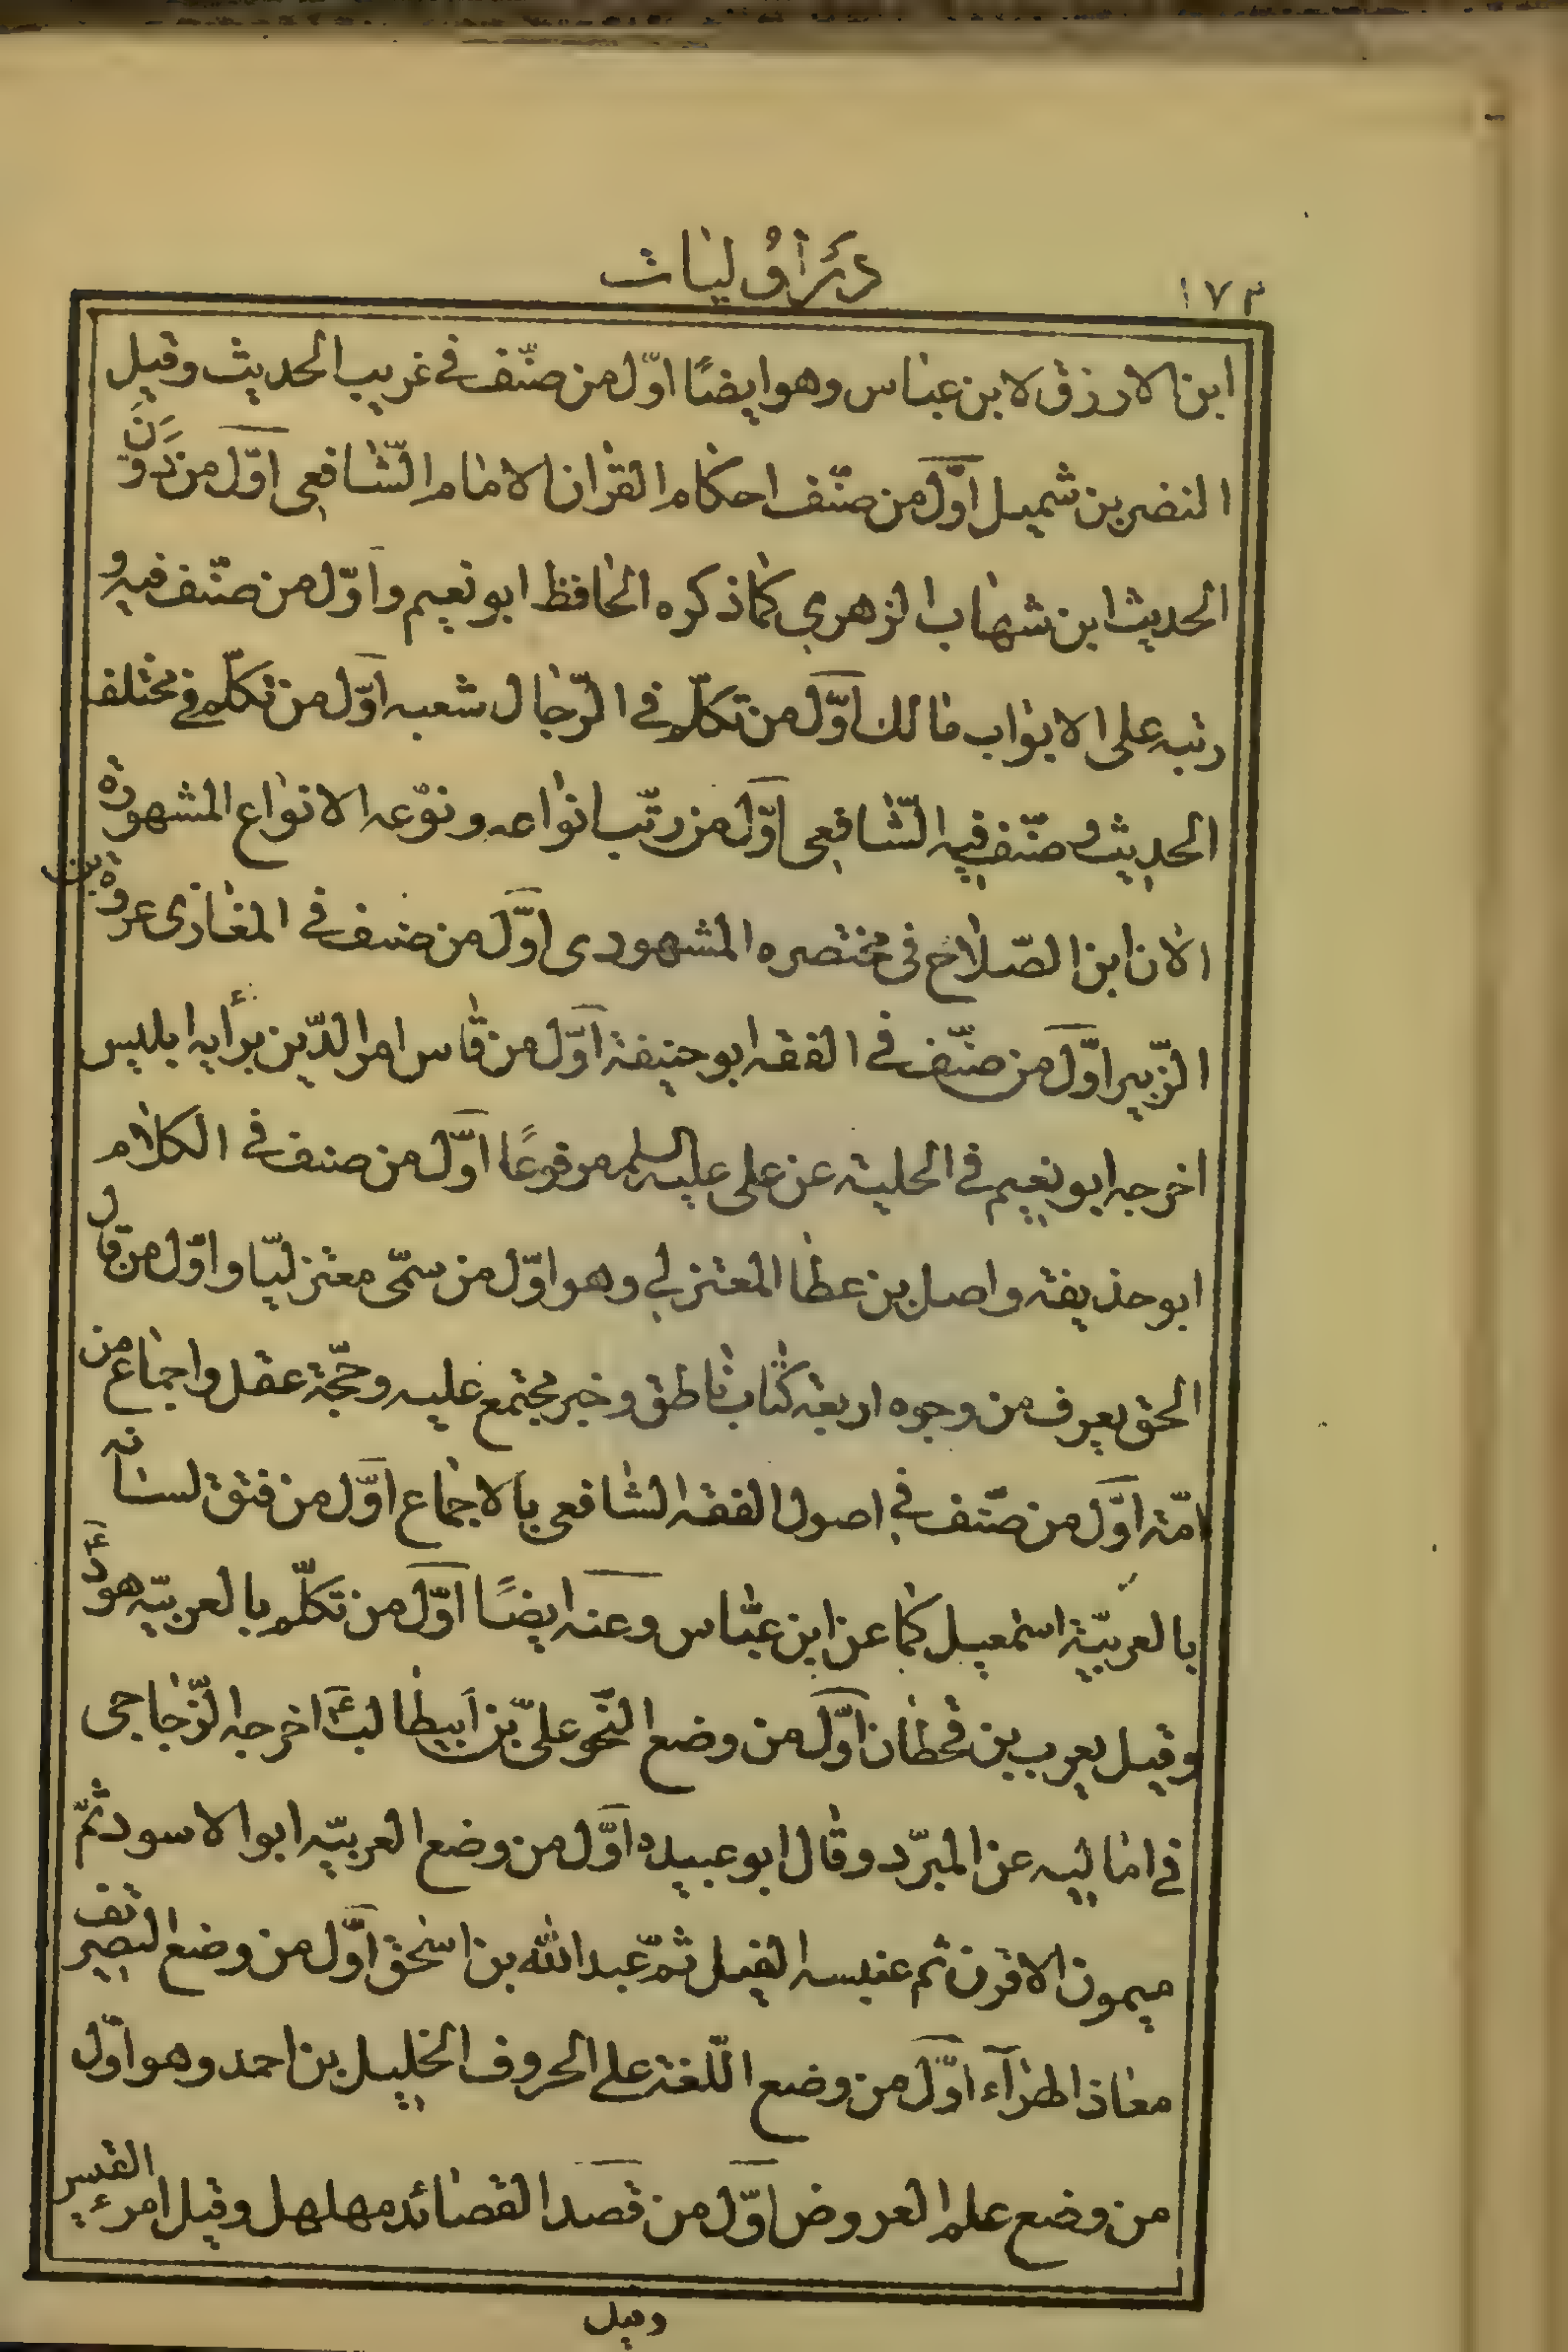 ١٧٣
در اوليات
ابن الازرق لابن عباس وهو ايضًا اوّل من صنّف في غريب الحديث وقيل
النضر بن شميل اوّل من صنّف احكام القران الامام الشّافعي اوّل من دَوَّنَ
الحديث ابن شهاب الزهري كما ذكره الحافظ ابو نعيم واوّل من صنّف فيه و
رتبه على الابواب مالك اوّل من تكلّم في الرّجال شعبه اوّل من تكلّم في مختلف
الحديث و صنّف فيه الشّافعي اوّل من رتّب انواعه ونوّعه الانواع المشهورة
الان ابن الصّلاح في مختصره المشهور دى اوّل من صنف في المغازى عروة بن
الزّبير اوّل من صنّف في الفقه ابو حنيفة اوّل من قاس امر الدّين برأيه ابليس
اخرجه ابو نعيم في الحلية عن على عليه السلم مرفوعًا اوّل من صنف في الكلام
ابو حذيفة واصل بن عطا المعتزلي وهو اوّل من سمّى معتزليّا واوّل من قال
الحق يعرف من وجوه اربعة كتاب ناطق وخبر مجتمع عليه وحجّة عقل واجماع من
امّة اوّل من صنّف في اصول الفقه الشافعي بالاجماع اوّل من فتق لسانه
بالعربيّة اسمعيل كما عن ابن عبّاس وعنه ايضًا اوّل من تكلّم بالعربيّه هودٌ
وقيل يعرب بن قحطان اوّل من وضع النّحو علىّ بن ابيطالب ع اخرجه الزّجاجى
في اماليه عن المبرّد وقال ابو عبيده اوّل من وضع العربيّه ابو الاسود ثمّ
ميمون الاقرن ثم عنبسه الفيل ثمّ عبدالله بن اسحق اوّل من وضع التصريف
معاذ الهرآء اوّل من وضع اللّغة على الحروف الخليل بن احمد وهو اوّل
من وضع علم العروض اوّل من قصد القصائد مهلهل وقيل امرء القيس
وقيل